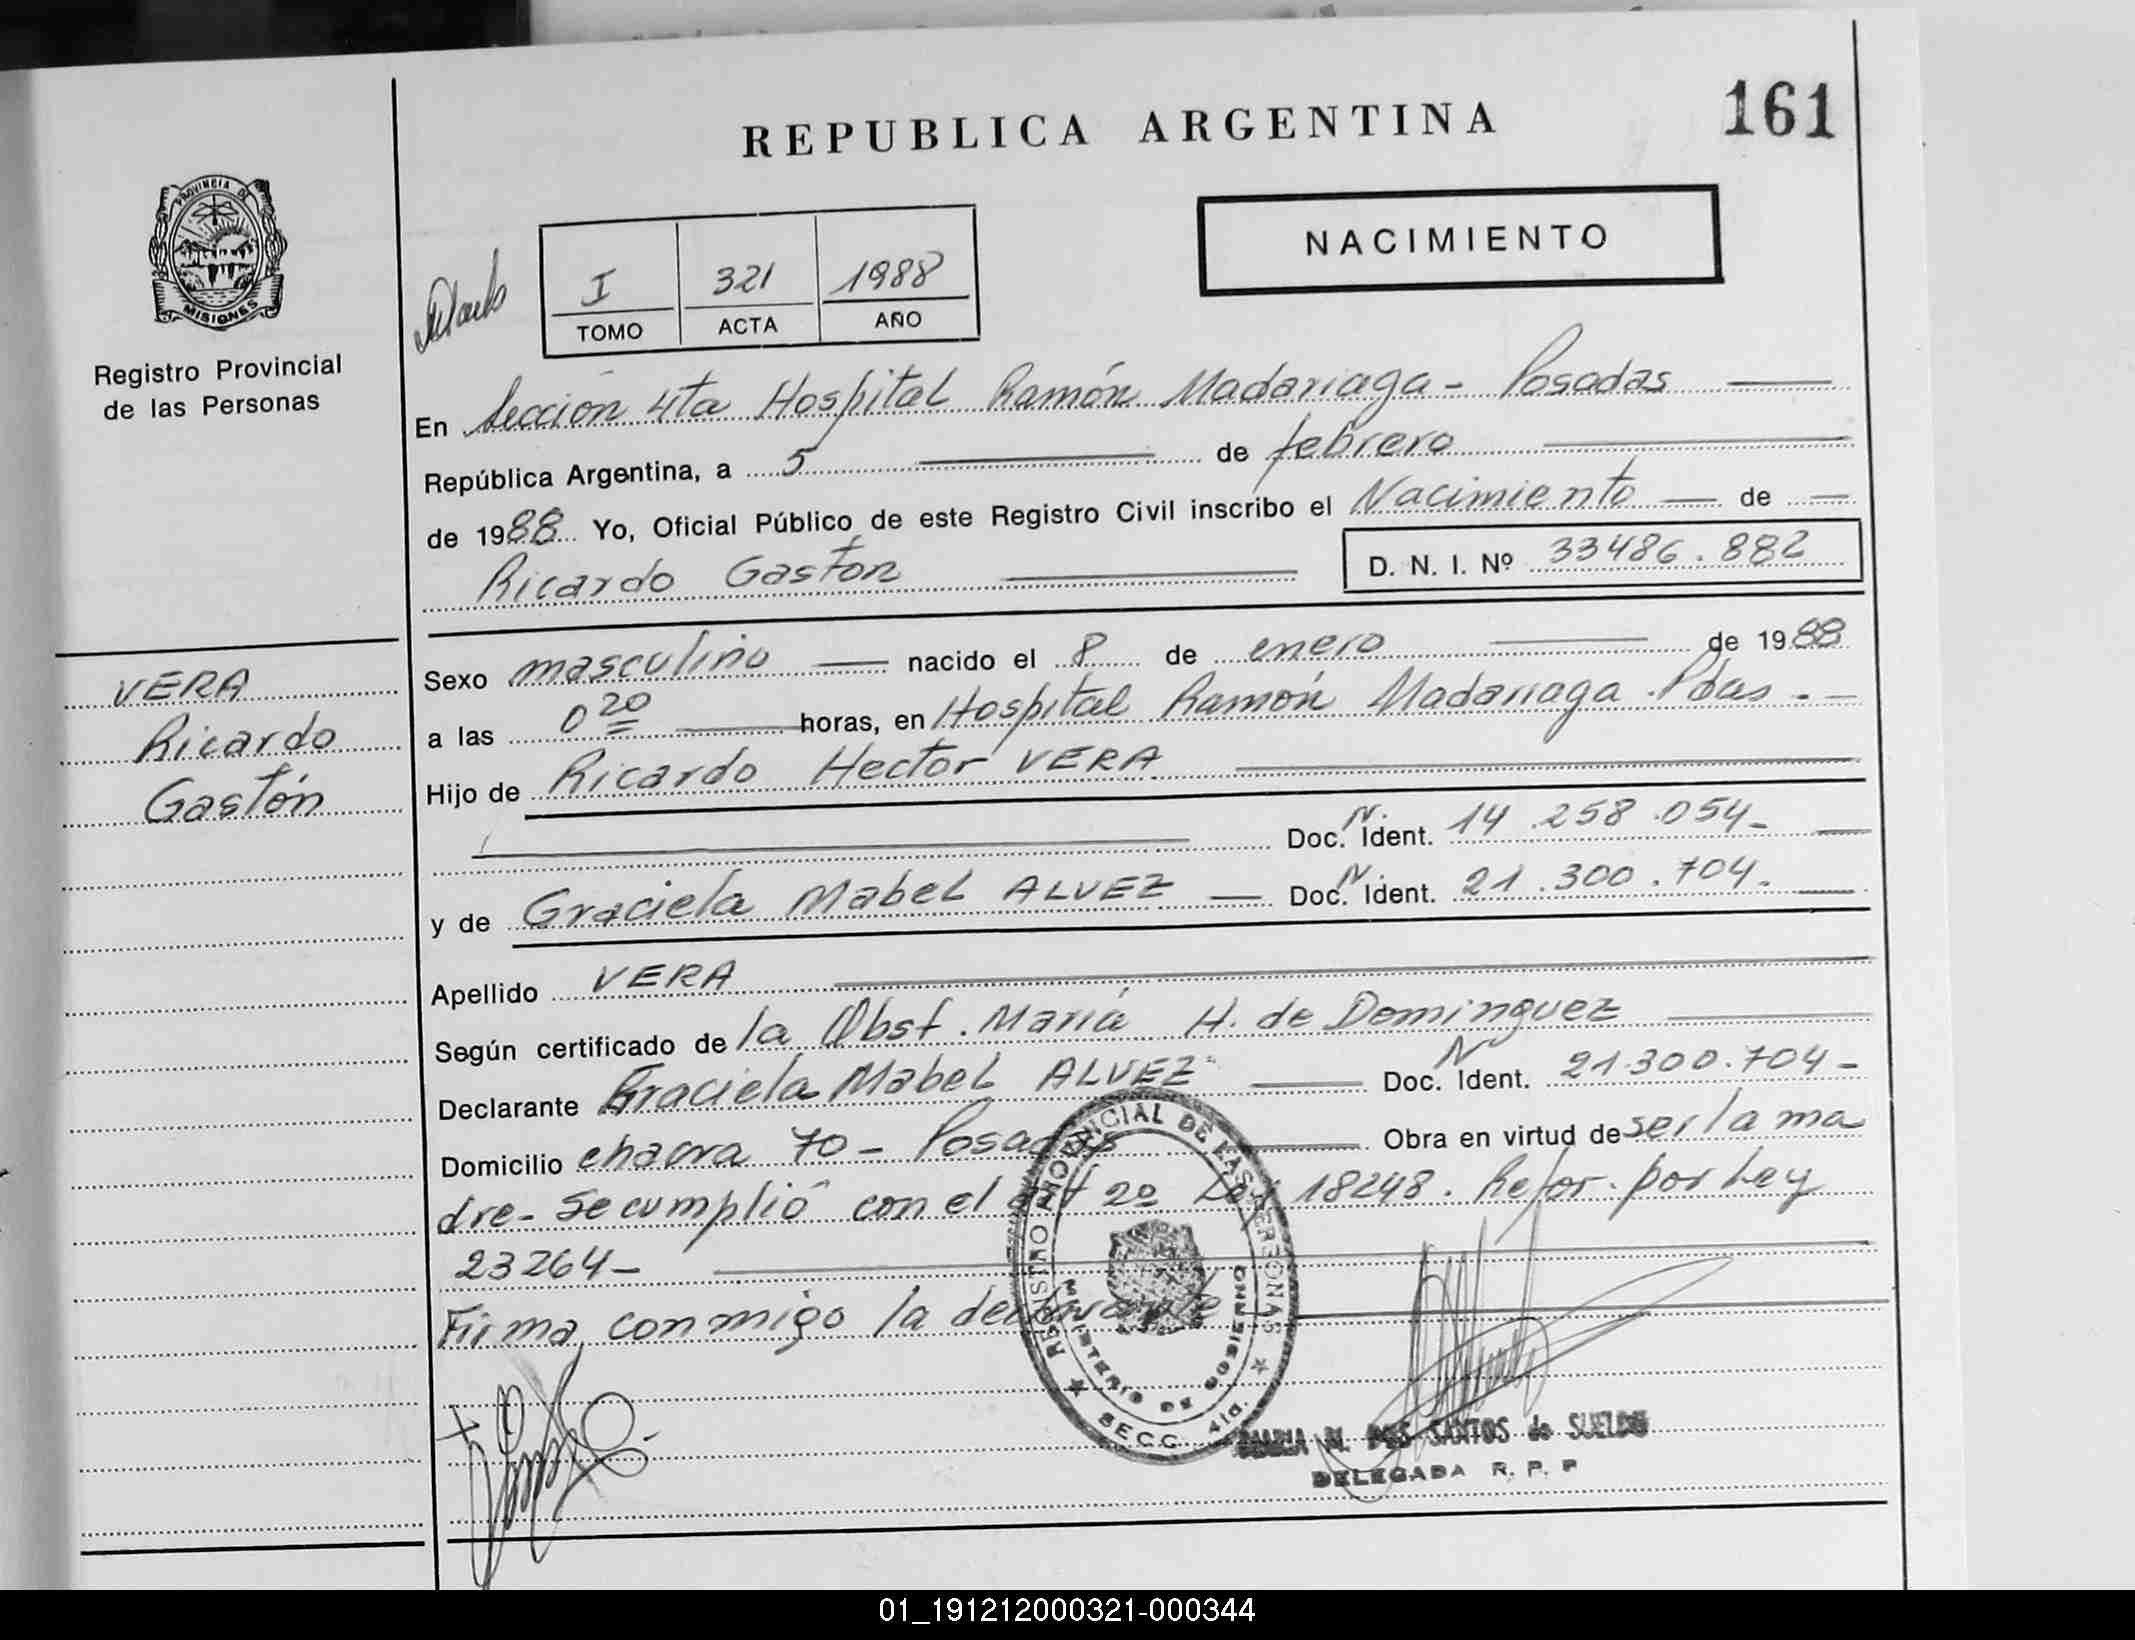 REPUBLICA ARGENTINA
161
PROVINCIA DE
MISIONES
Registro Provincial
de las Personas
NACIMIENTO
I 321 1988
TOMO ACTA AÑO
En Sección 4ta Hospital Ramón Madariaga - Posadas
República Argentina, a 5 de febrero
de 1988. Yo, Oficial Público de este Registro Civil inscribo el Nacimiento de
Ricardo Gastón D. N. I. Nº 33486.882
VERA
Ricardo
Gastón
Sexo masculino nacido el 8 de enero de 1988
a las 0 20 horas, en Hospital Ramón Madariaga. Pdas.-
Hijo de Ricardo Hector VERA
Doc. N. Ident. 14.258.054-
y de Graciela Mabel ALVEZ Doc. N Ident. 21.300.704.
Apellido VERA
Según certificado de la Obst. María H. de Dominguez
Declarante Graciela Mabel ALVEZ Doc. N Ident. 21.300.704-
Domicilio chacra 70 - Posadas Obra en virtud de ser la ma
dre- Se cumplió con el art 2º Ley 18248. Refor. por Ley
23264-
Firma conmigo la declarante
REGISTRO PROVINCIAL DE LAS PERSONAS
MINISTERIO DE GOBIERNO
SECC. 4ta.
MARIA M. DOS SANTOS de SUELDO
DELEGADA R. P. P
01_191212000321-000344